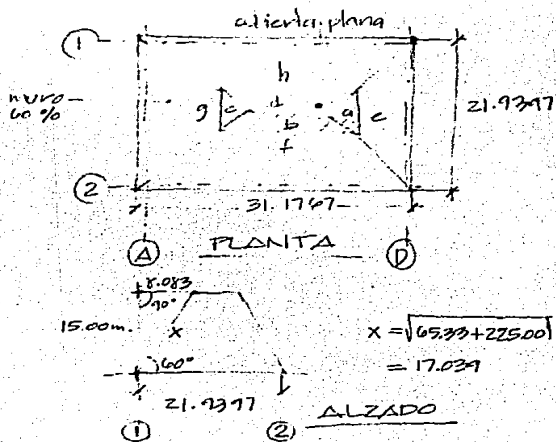 cubierta plana
1
h
muro
60 %
g c d a e
b
f
21.9397
2
31.1767
A PLANTA D
8.083
90°
15.00m.
x
x = √65.33+225.00
60°
= 17.039
21.9397
1 2 ALZADO